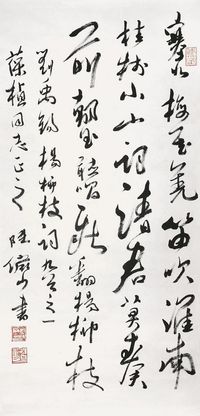 塞北梅花羌笛吹淮南
桂樹小山詞請君莫奏
前朝曲聽唱新翻楊柳枝
劉禹錫楊柳枝詞九首之一
葆楨同志正之 陸儼少書